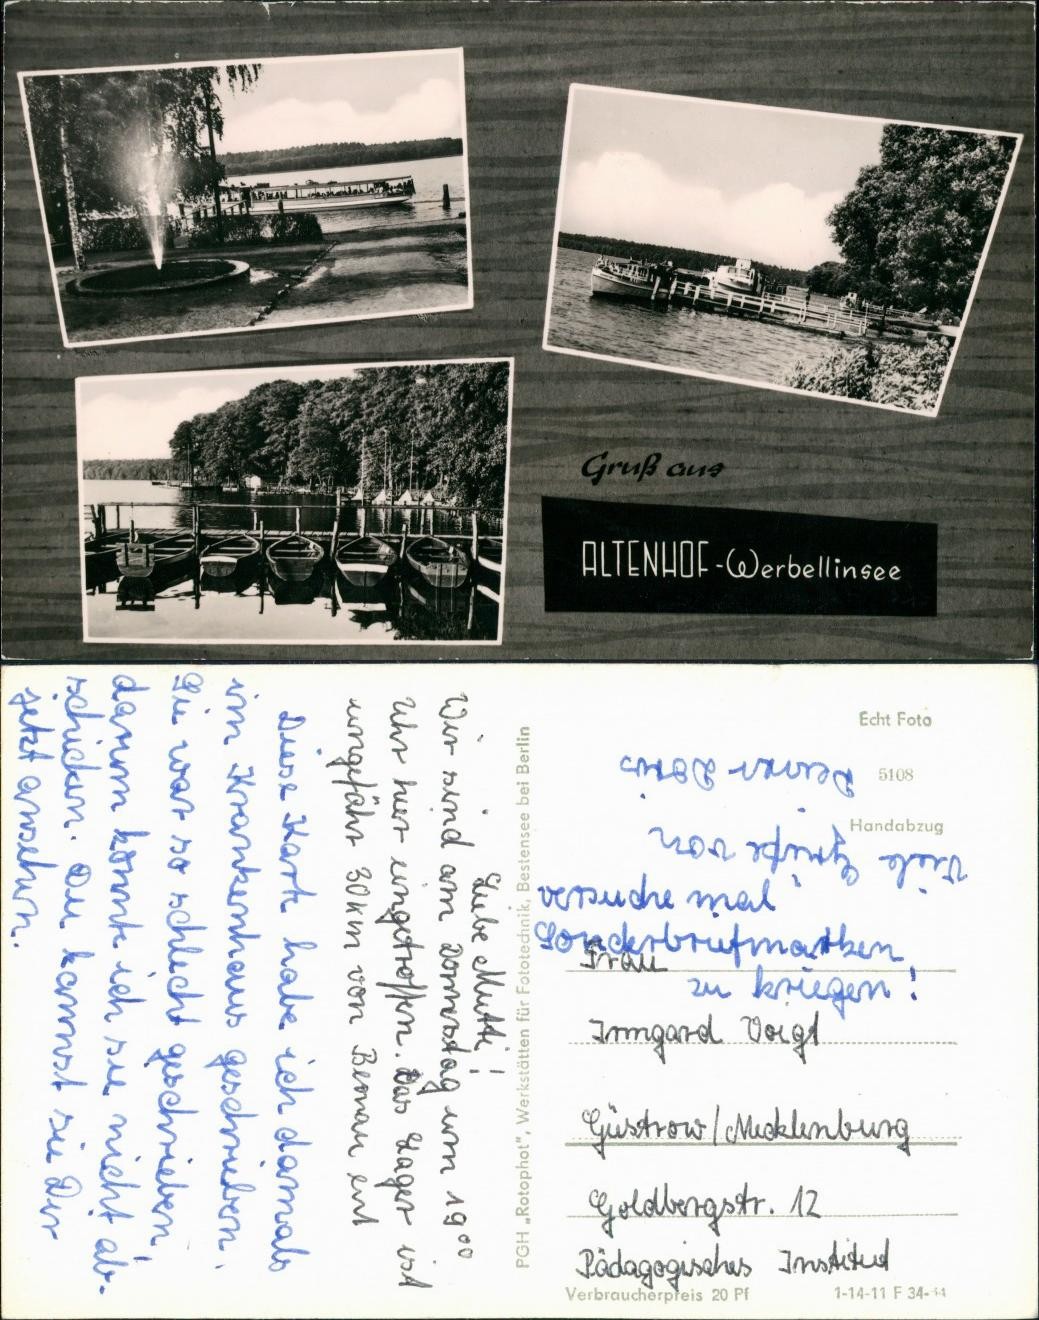 Gruß aus
ALTENHOF-Werbellinsee
Liebe Mutti!
Wir sind am Donnstag um 19⁰⁰
Uhr hier eingetroffen. Das Lager ist
ungefähr 30km von Bernau ent
Diese Karte habe ich damals
im Krankenhaus geschrieben.
Sie war so schlecht geschrieben,
darum konnte ich sie nicht ab-
schicken. Du kannst sie Dir
jetzt ansehen.
PGH „Rotophot", Werkstätten für Fototechnik, Bestensee bei Berlin
Echt Foto
5108
Handabzug
Viele Grüße von
Deiner Doris
versuche mal
Sonderbriefmarken
zu kriegen!
Frau
Irmgard Voigt
Güstrow/Mecklenburg
Goldbergstr. 12
Pädagogisches Institut
Verbraucherpreis 20 Pf
1-14-11 F 34-